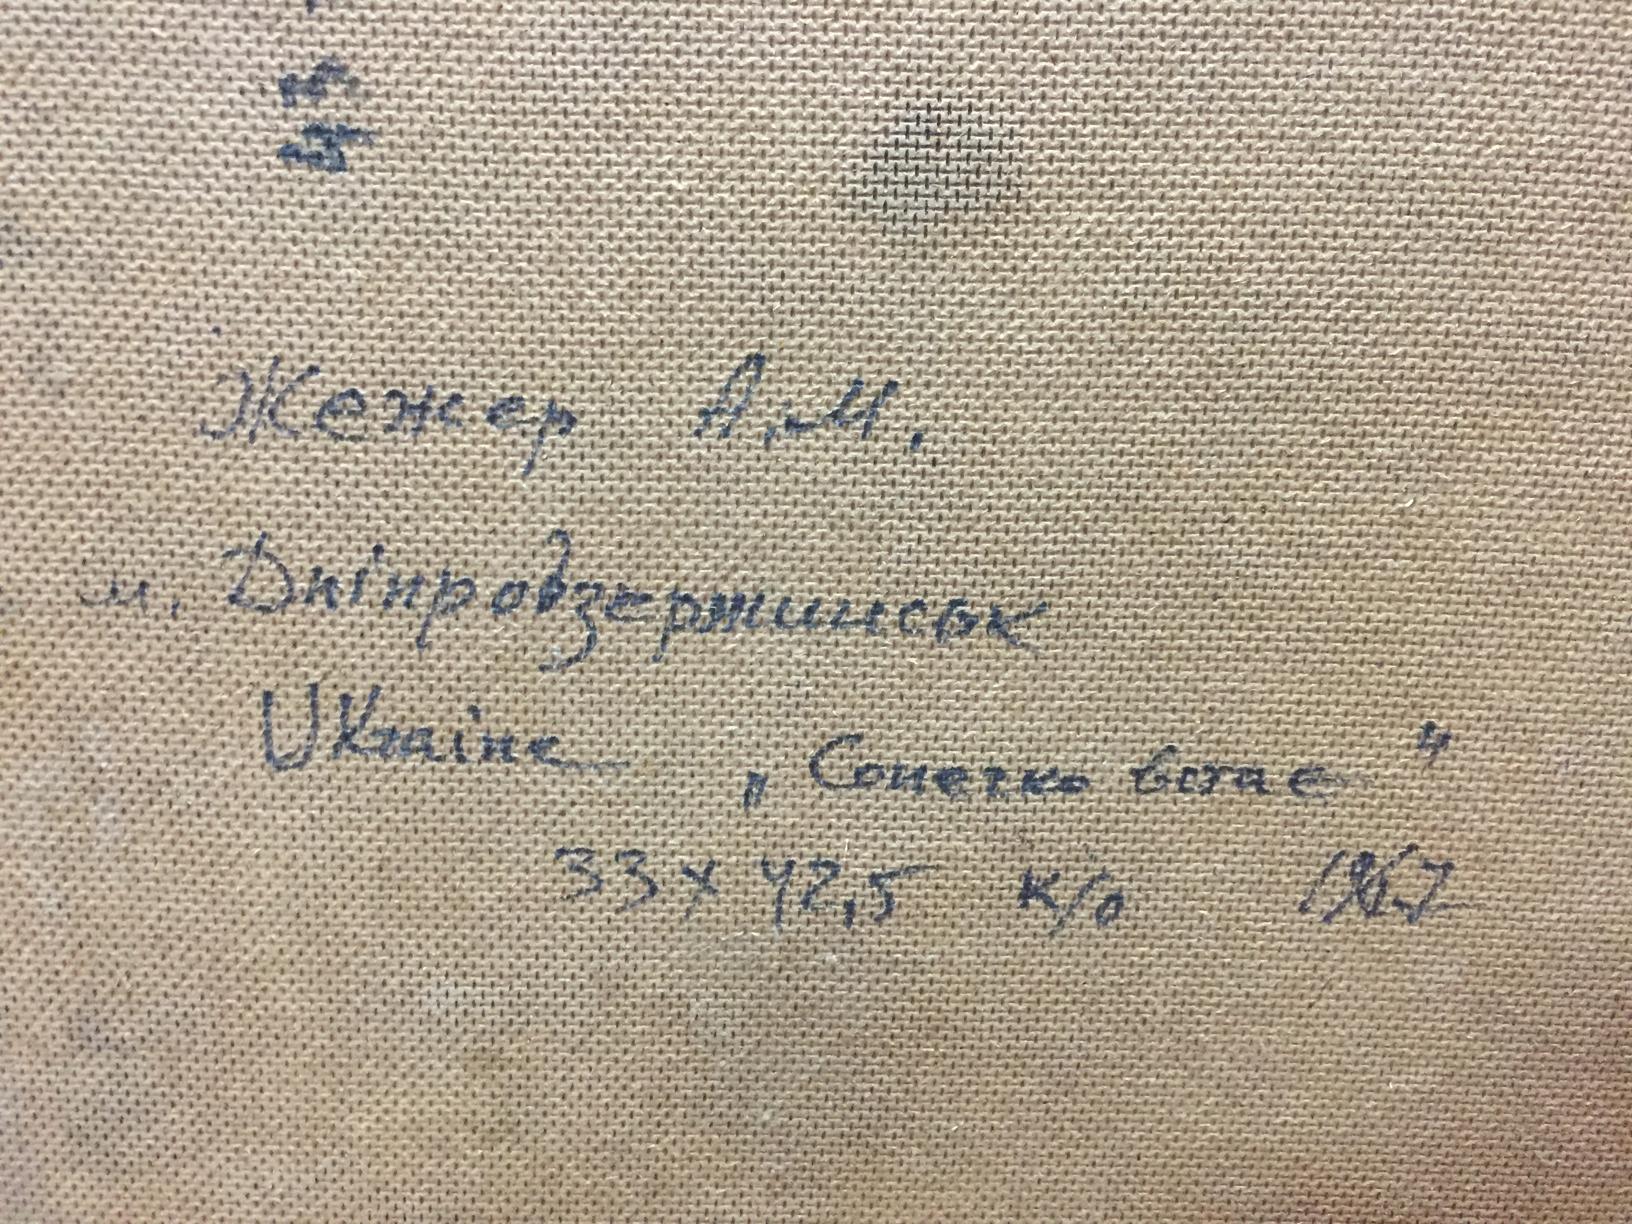 Жежер А.М.
м. Дніпродзержинськ
Ukraine „Сонечко встає"
33х42,5 к/о 1967